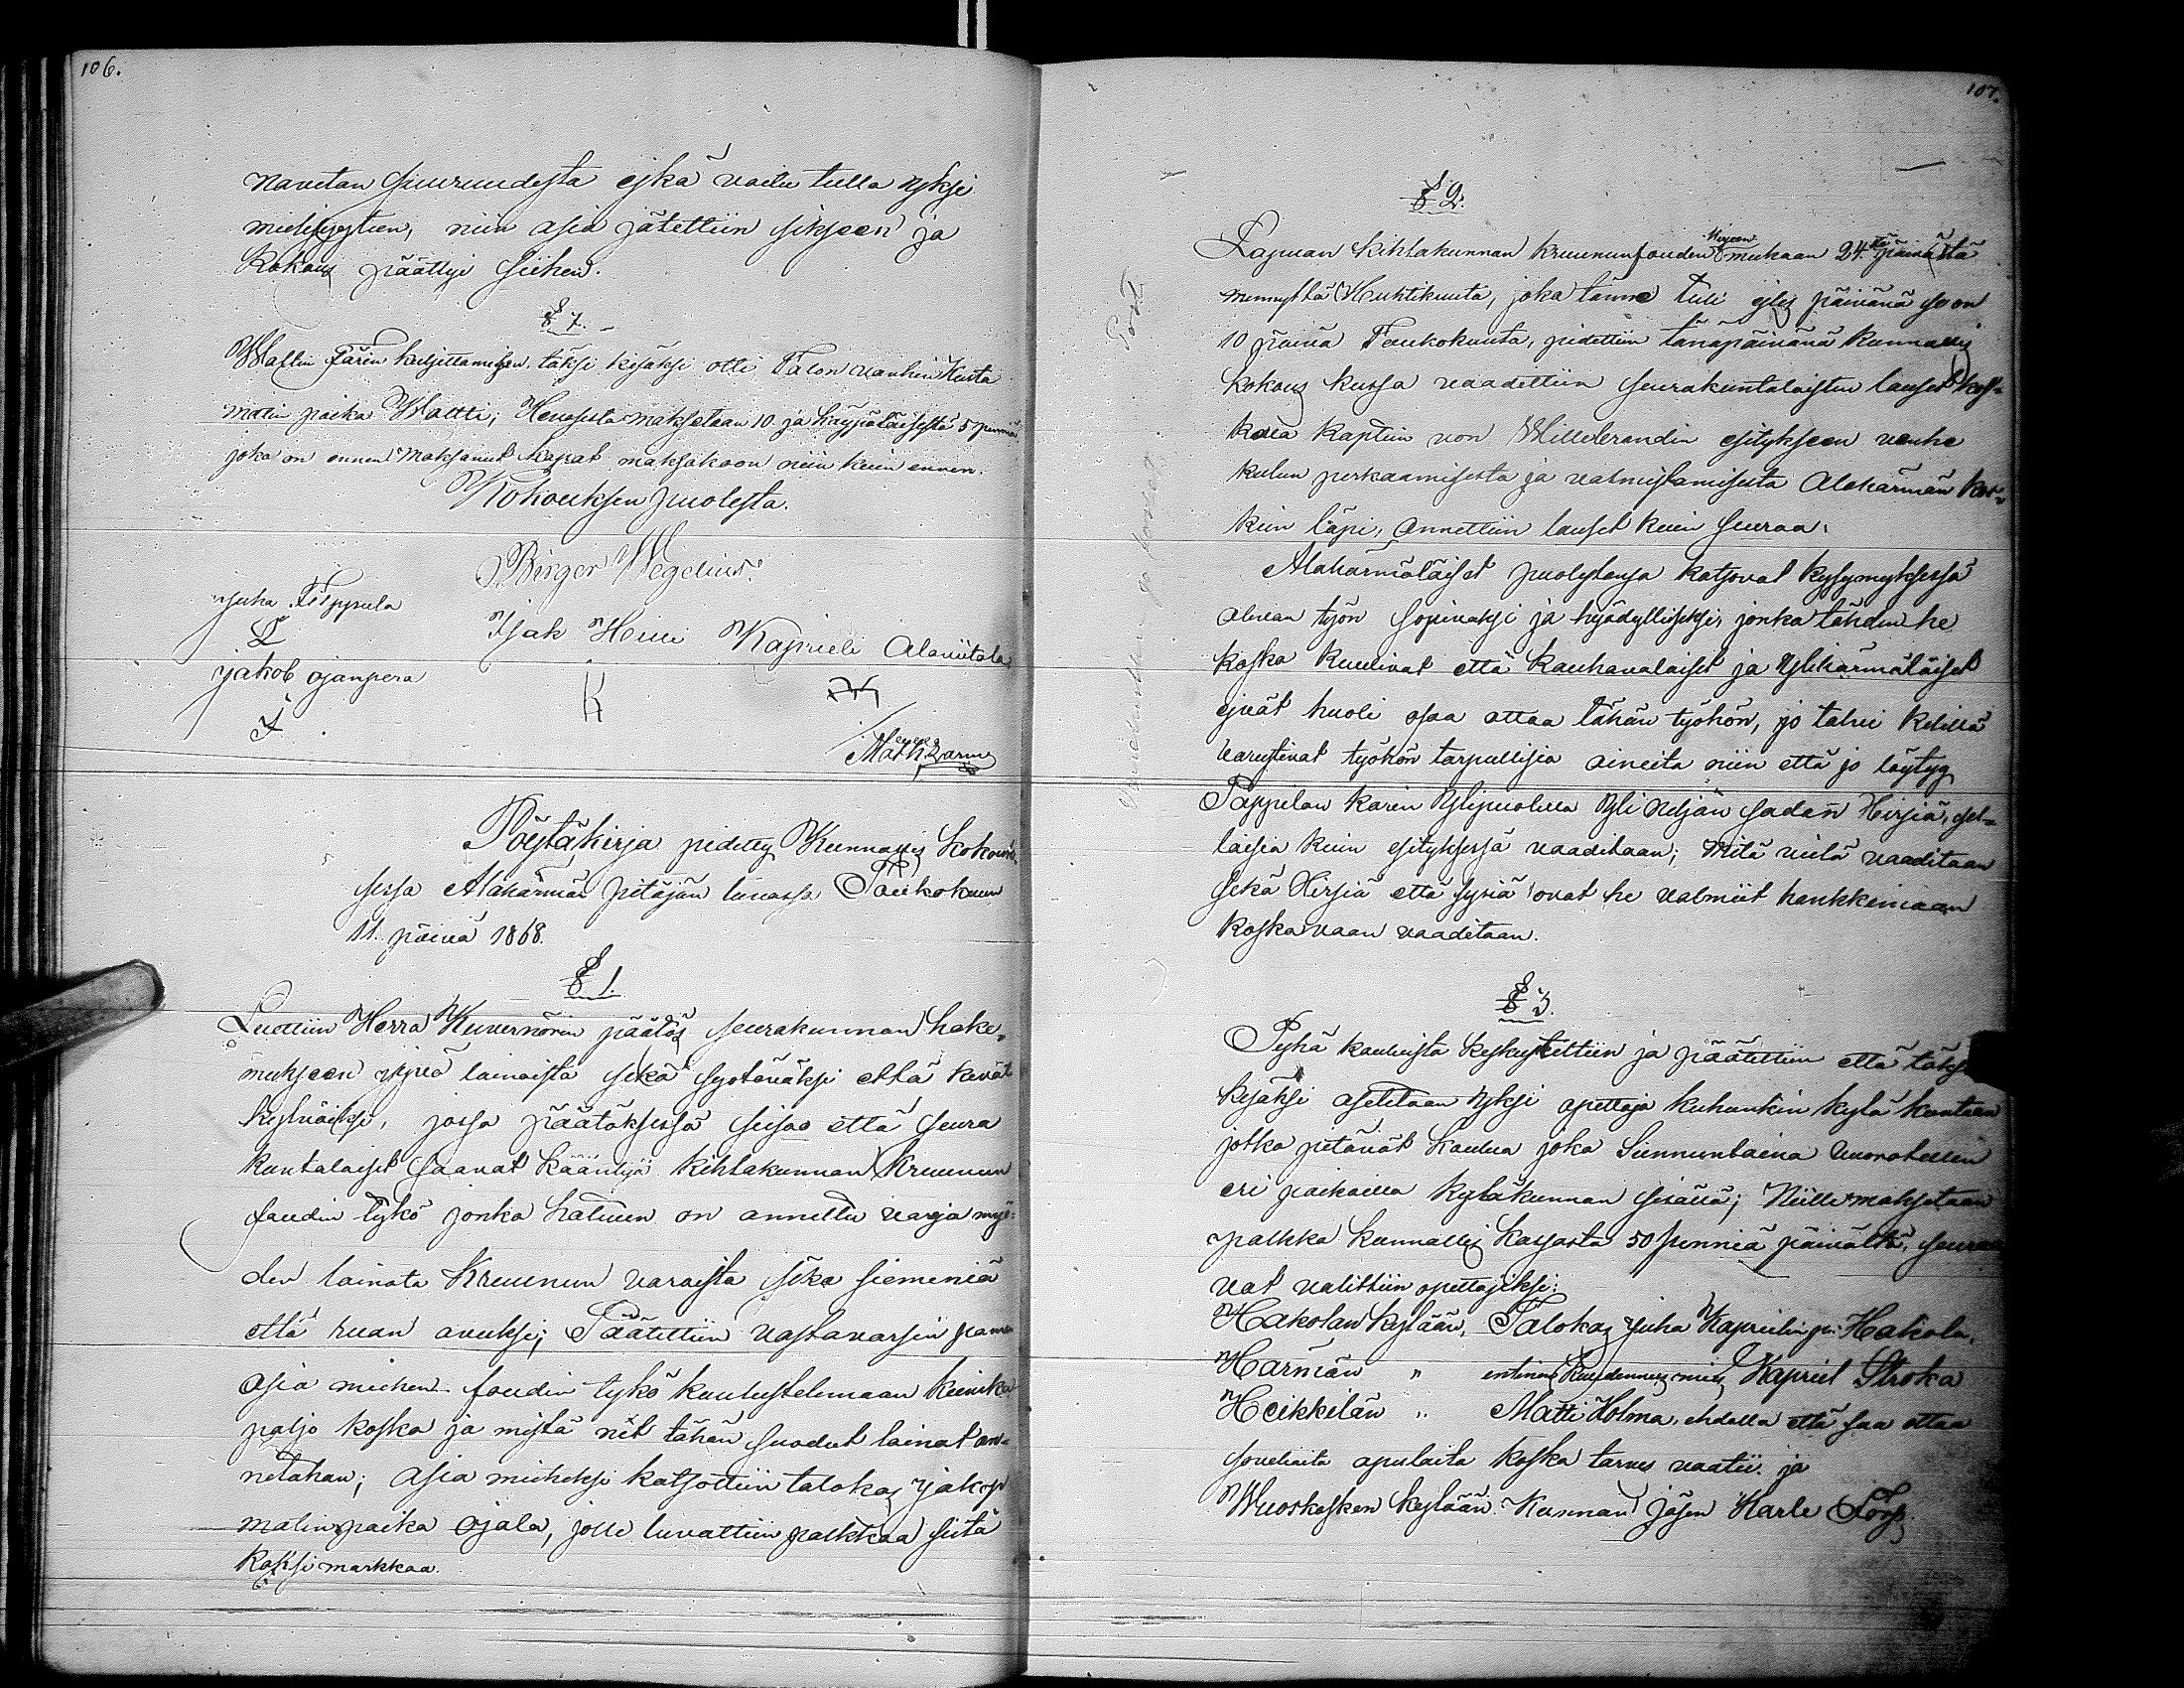 106.
navetan suuruudesta eikä voitu tulla yksi
mielisyyteen, niin asia jätettiin sikseen ja
Kokous päättyi siihen.
§ 7.
Waltin Färin kuljettamisen täksi kesäksi otti Talon vanhin Kusta
Matin poika Waltti; Hevosesta maksetaan 10 ja käypäläisestä 5 penniä
joka on ennen maksanut kapat maksakoon niin kuin ennen.
Kokouksen puolesta.
Birger Wegelius.
Juha Filppula
Isak Heiui Kaprieli Alaviitala
jakob ojanpera
Math
Pöytäkirja pidetty Kunnallis kokouk-
sessa Alahärmän pitäjän tuvassa Toukokuun
11. päivä 1868.
§ 1.
Luettiin Herra Kuvernörin päätös seurakunnan hake-
mukseen jyvä lainoista sekä syötäväksi että kevät
kylvöiksi, jossa päätöksessä seisoo että seura
kuntalaiset saavat kääntyä kihlakunnan Kruunun
foudin tykö jonka haltuun on annettu varoja myö-
den lainata Kruunun varoista sekä siemeniä
että ruan avuksi; Päätettiin vastavarsin panna
asia miehen foudin tykö kuulustelemaan kuinka
paljo koska ja mistä nät tähän suodut lainat an-
netahan; Asia mieheksi katsottiin talokas Jakop
Matinpoika Ojala, jolle luvattiin palkkaa siitä
kaksi markkaa.
107.
§ 2.
Lapuan Kihlakunnan kruununfoudin kirjeen mukaan 24:ttä päivästä
mennyttä Huhtikuuta, joka tänne tuli eiles päivänä se on
10 päivä Toukokuuta, pidettiin tänäpäivänä Kunnallis
kokous kussa vaadittiin seurakuntalaisten lauset kos-
kava kaptein von Willebrandin esitykseen venhe
kulun perkaamisesta ja valmistamisesta Alahärmän kos-
kein läpi, Annettiin lauset kuin seuraa:
Alahärmäläiset puolestansa katsovat kysymyksessä
olevan työn sopivaksi ja hyödylliseksi, jonka tähden he
koska kuulivat että Kauhavalaiset ja Ylihärmäläiset
ejvät huoli osaa ottaa tähän työhön, jo talvi kelillä
varustivat työhön tarpeellisia aineita niin että jo löytyy
Pappilan karin ylipuolella yli neljän sadan Hirsiä, sel-
laisia kuin esityksessä vaaditaan; mitä vielä vaaditaan
sekä Hirsiä että syriä ovat he valmiit hankkimaan
koska vaan vaaditaan.
§ 3.
Pyhä kouluista keskusteltiin ja päätettiin että täksi
kesäksi asetetaan yksi opettaja kuhunkin kylä kuntaan
jotka pitävät koulua joka Sunnuntaina vuorotellen
eri paikoilla kyläkunnan sisällä; Niille maksetaan
palkka kunnallis kassasta 50 penniä päivältä, seuraa-
vat valittiin opettajiksi:
Hakolan kylään, Talokas Juha Kaprielin p: Hakola,
Härmän " entinen kuudennusmies Kapriel Stroka
Heikkilän " Matti Holma, ehdolla että saa ottaa
soveliaita apulaita koska tarves vaatii. ja
Wuoskosken kylään. Kunnan jäsen Karle Törs